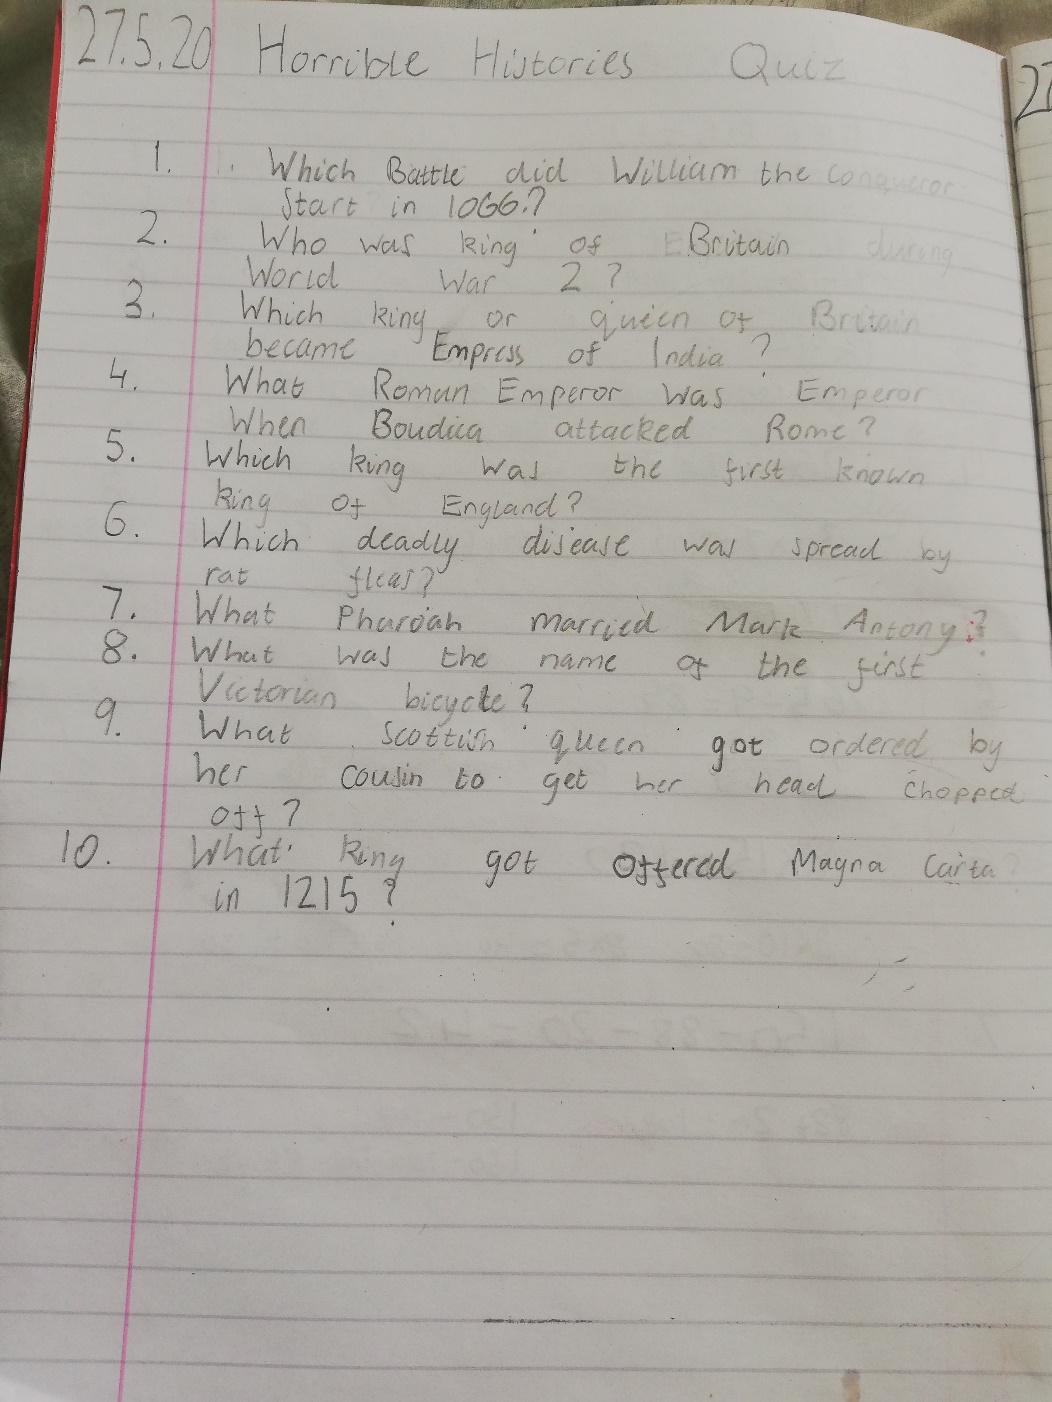 27.5.20 Horrible Histories Quiz
1. Which Battle did William the Conqueror
start in 1066?
2. Who was king of Britain during
World War 2?
3. Which king or queen of Britain
became Empress of India?
4. What Roman Emperor was Emperor
When Boudica attacked Rome?
5. Which king was the first known
king of England?
6. Which deadly disease was spread by
rat fleas?
7. What Pharoah married Mark Antony?
8. What was the name of the first
Victorian bicycle?
9. What Scottish queen got ordered by
her cousin to get her head chopped
off?
10. What king got offered Magna Carta
in 1215?
27